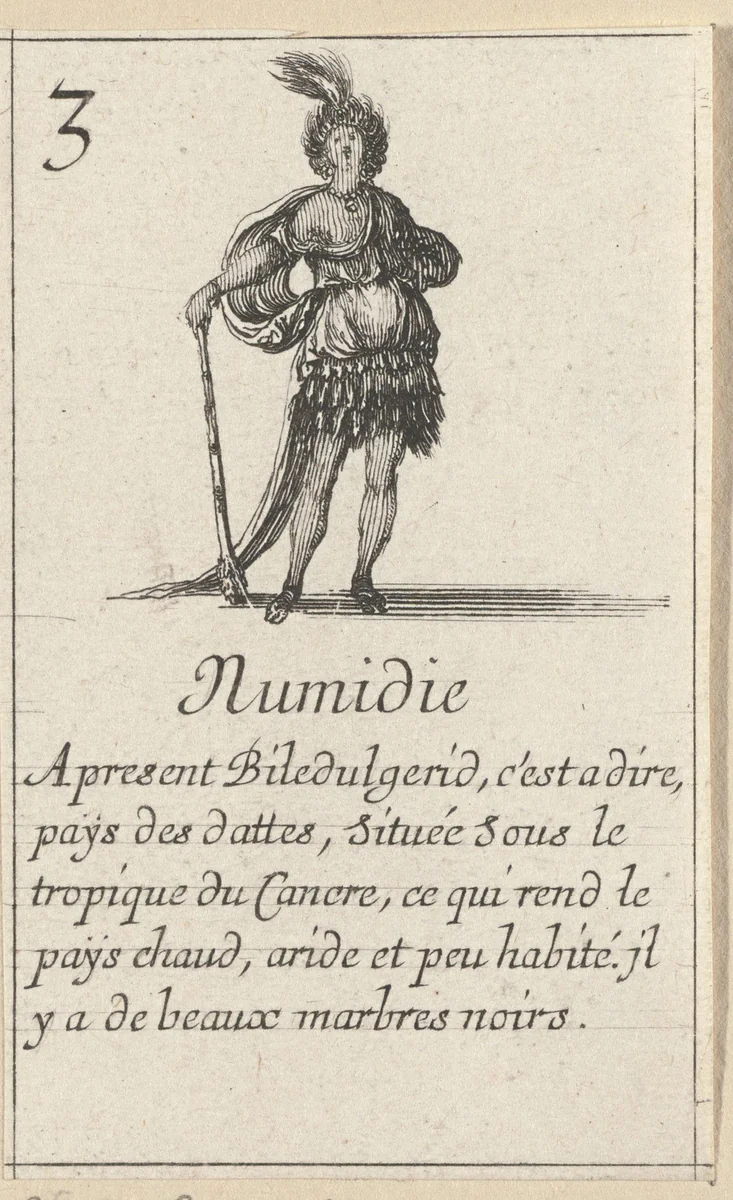 3
Numidie
Apresent Biledulgerid, c'est a dire,
païs des dattes, située sous le
tropique du Cancre, ce qui rend le
païs chaud, aride et peu habité. jl
y a de beaux marbres noirs.